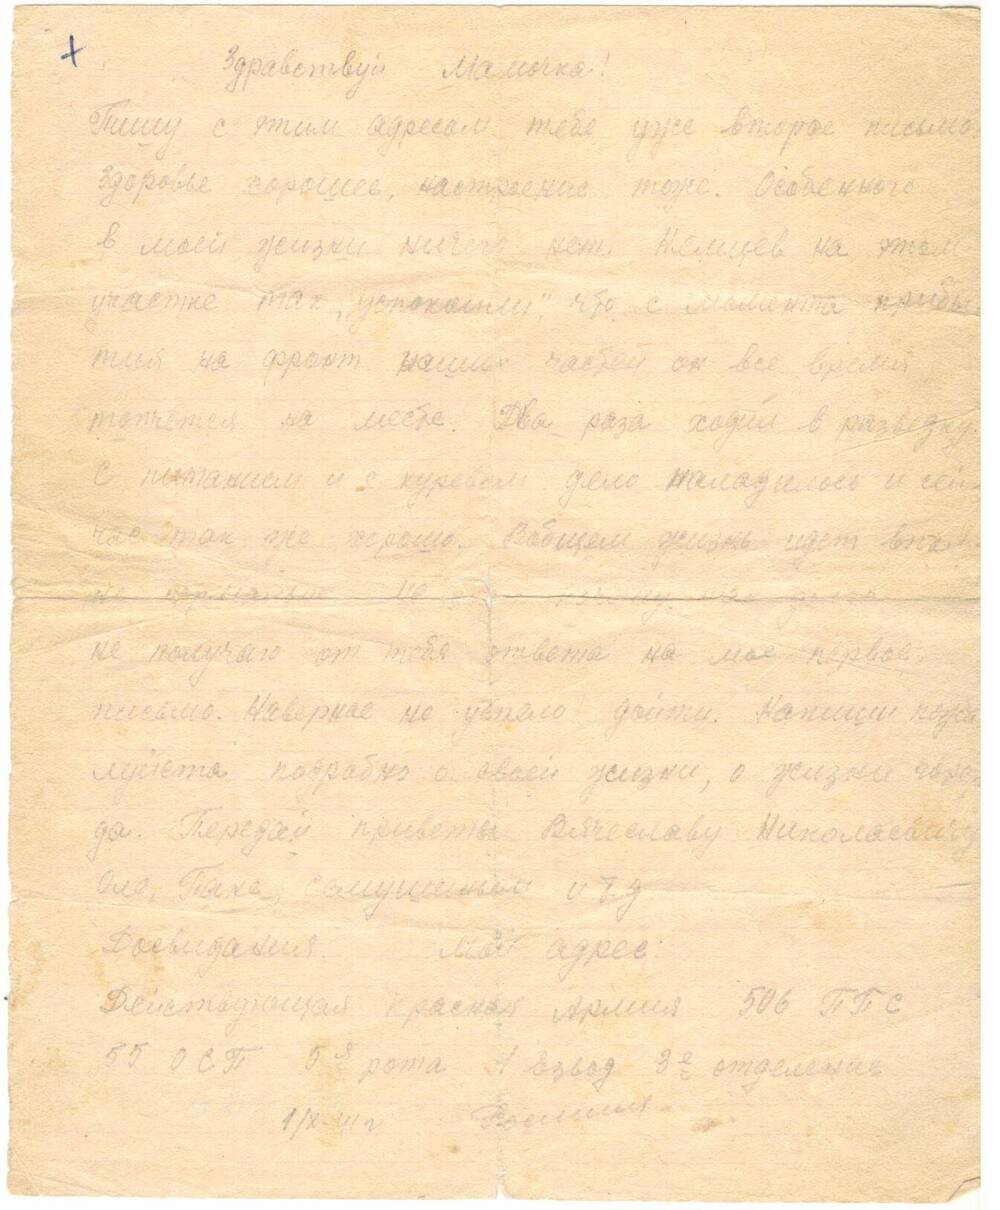 Здравствуй Мамочка!
Пишу с этим адресом тебе уже второе письмо.
Здоровье хорошее, настроение тоже. Особенного
в моей жизни ничего нет. Немцев на этом
участке так „успокоили", что с момента прибы
тия на фронт наших частей он все время
топчется на месте. Два раза ходил в разведку.
С питанием и с куревом дело наладилось и сей-
час так же хорошо. Вобщем жизнь идет впол
не
не получаю от тебя ответа на мое первое
письмо. Наверное не успело дойти. Напиши пожа
луйста подробно о своей жизни, о жизни горо
да. Передай приветы Вячеславу Николаевичу
и т.д
Досвидания. Мой адрес:
Действующая Красная Армия 506 ППС
55 ОСП 5я рота 1 взвод 3е отделение